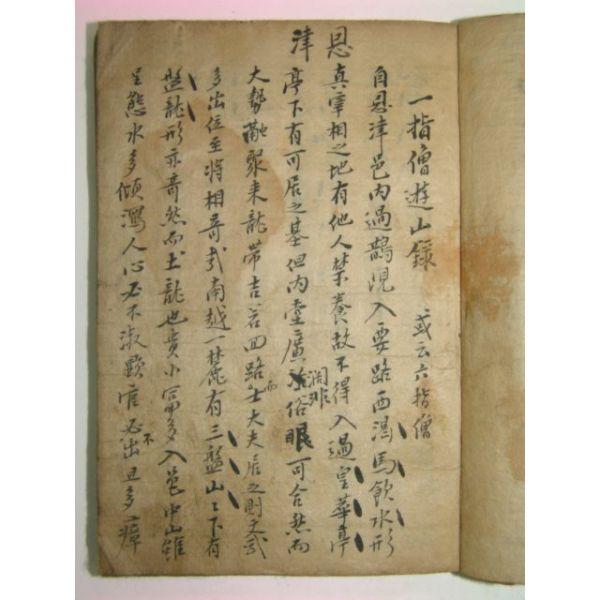 一指僧遊山錄 或云六指僧
恩津
自恩津邑內過鵲峴入要路西渴馬飮水形
真宰相之地有他人禁養故不得入過皇華亭
亭下有可居之基但內堂廣闊非俗眼可合然而
大勢融聚來龍帶吉若四路士大夫居之則文武
多出位至將相哥弍南越一麓有三盤山〻下有
盤龍形亦奇然而土龍也貴小富多入邑中山雖
呈態水多傾瀉人心必不淑顯官必不出且多瘴